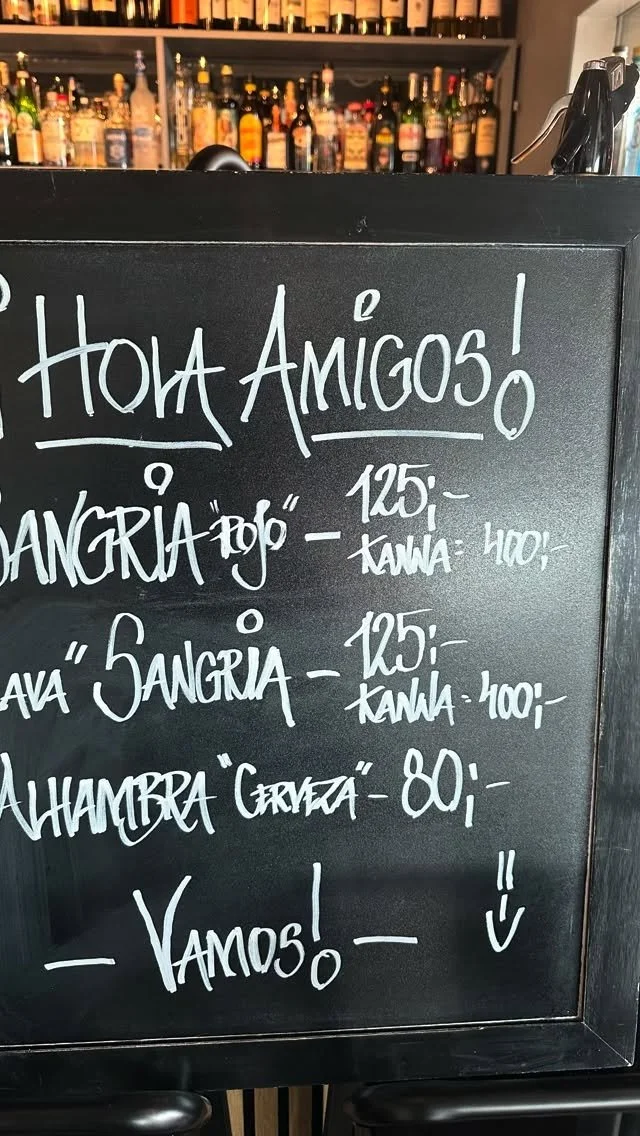 ¡ HOLA AMIGOS!
SANGRIA "ROJO" - 125;-
KANNA = 400;-
AVA" SANGRIA - 125;-
KANNA = 400;-
ALHAMBRA "CERVEZA" - 80;-
- VAMOS! -